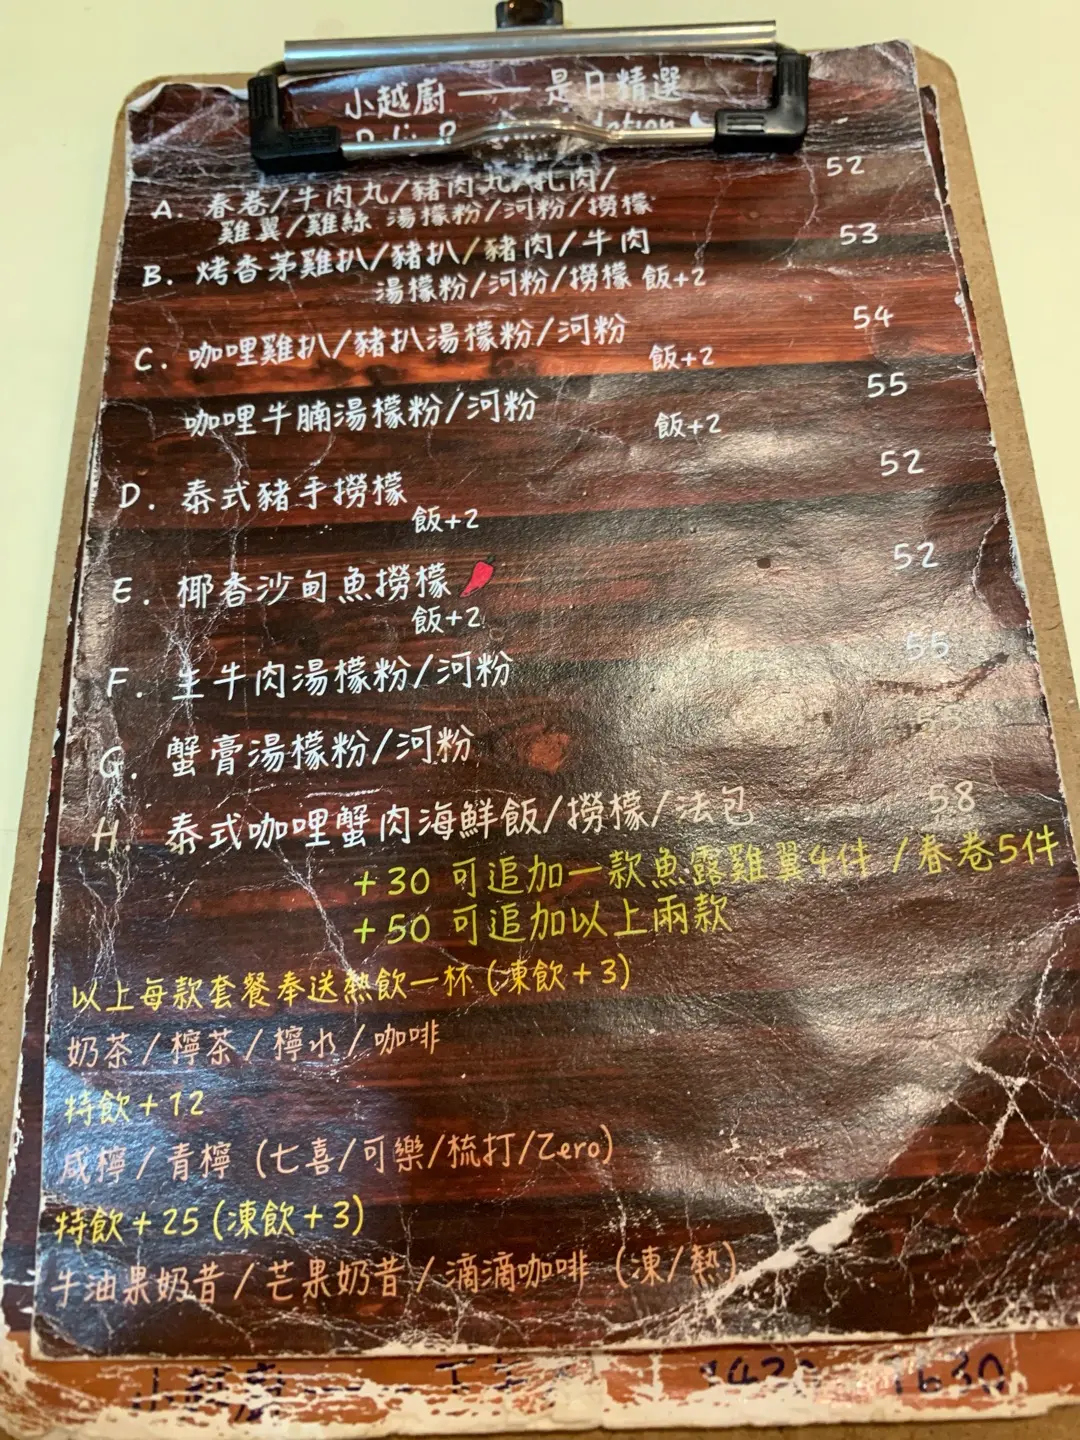 小越廚 —— 是日精選
A. 春卷/牛肉丸/豬肉丸/扎肉/ 52
雞翼/雞絲 湯檬粉/河粉/撈檬
B. 烤香茅雞扒/豬扒/豬肉/牛肉 53
湯檬粉/河粉/撈檬 飯+2
C. 咖哩雞扒/豬扒湯檬粉/河粉 54
飯+2
咖哩牛腩湯檬粉/河粉 55
飯+2
D. 泰式豬手撈檬 52
飯+2
E. 椰香沙甸魚撈檬 52
飯+2
F. 生牛肉湯檬粉/河粉 55
G. 蟹膏湯檬粉/河粉
H. 泰式咖哩蟹肉海鮮飯/撈檬/法包 58
+30 可追加一款魚露雞翼4件 /春卷5件
+50 可追加以上兩款
以上每款套餐奉送熱飲一杯 (凍飲+3)
奶茶/檸茶/檸水/咖啡
特飲+12
咸檸/青檸 (七喜/可樂/梳打/Zero)
特飲+25 (凍飲+3)
牛油果奶昔/芒果奶昔/滴滴咖啡 (凍/熱)
小越廚 1430 1630